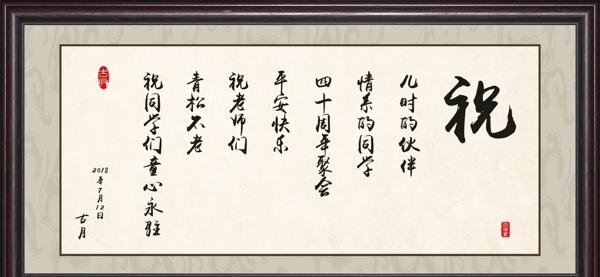 祝
儿时的伙伴
情系的同学
四十周年聚会
平安快乐
祝老师们
青松不老
祝同学们童心永驻
2018年7月12日
古月